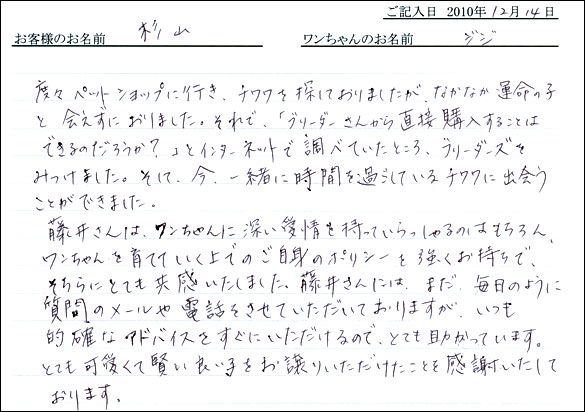 ご記入日 2010年 12月 14日
お客様のお名前 杉山 ワンちゃんのお名前 ジジ
度々ペットショップに行き、チワワを探しておりましたが、なかなか運命の子
と会えずにおりました。それで、「ブリーダーさんから直接購入することは
できるのだろうか？」とインターネットで調べていたところ、ブリーダーズを
みつけました。そして、今、一緒に時間を過らしているチワワに出会う
ことができました。
藤井さんは、ワンちゃんに深い愛情を持っていらっしゃるのはもちろん、
ワンちゃんを育てていく上でのご自身のポリシーを強くお持ちで、
そちらにとても共感いたしました。藤井さんには、まだ、毎日のように
質問のメールや電話をさせていただいておりますが、いつも
的確なアドバイスをすぐにいただけるので、とても助かっています。
とても可愛くて賢い良い子をお譲りいただけたことを感謝いたして
おります。